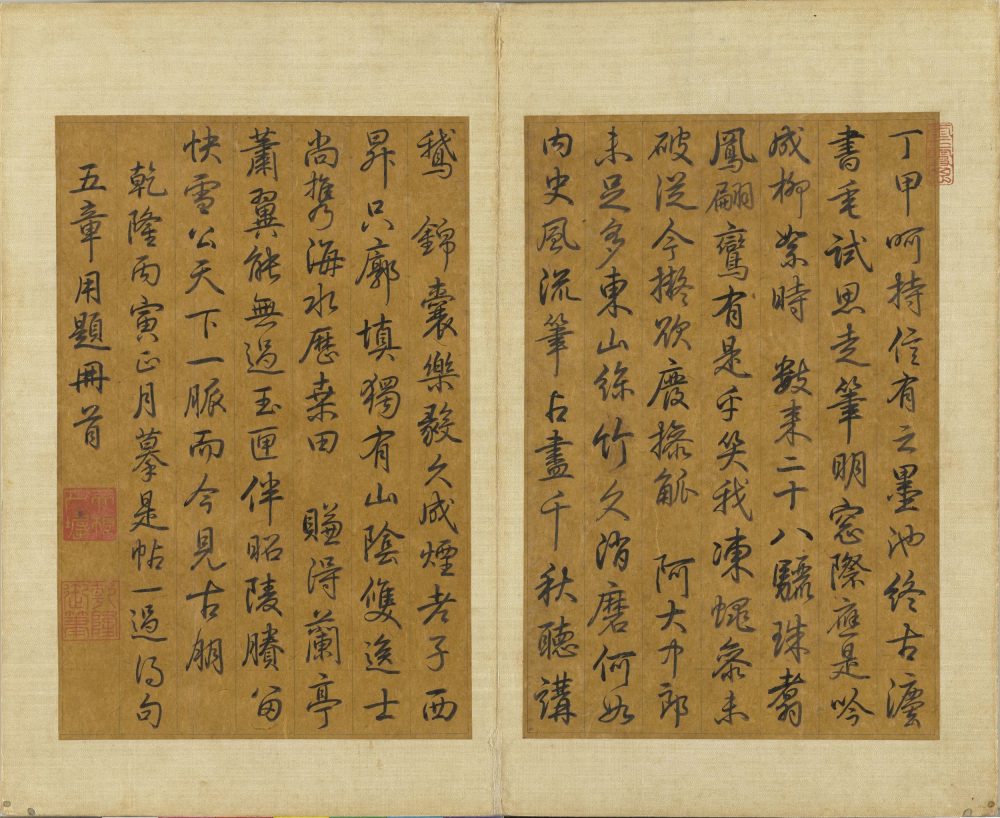 丁甲呵持信有之墨池終古瀍
書毛試思走筆明窓際應是吟
成柳絮時　數来二十八驪珠翥
鳳翩鸞有是乎笑我凍蠅叅未
破從今擬欲廢操觚　阿大中郎
未足多東山絲竹久消磨何如
内史風流筆占盡千秋聽講
鵝　錦囊樂毅久成煙老子西
昇只廓填獨有山陰雙逸士
尚携海水歴桒田　賺得蘭亭
蕭翼能無過玉匣伴昭陵賸留
快雪公天下一脈而今見古朋
乾隆丙寅正月摹是帖一過得句
五章用題冊首